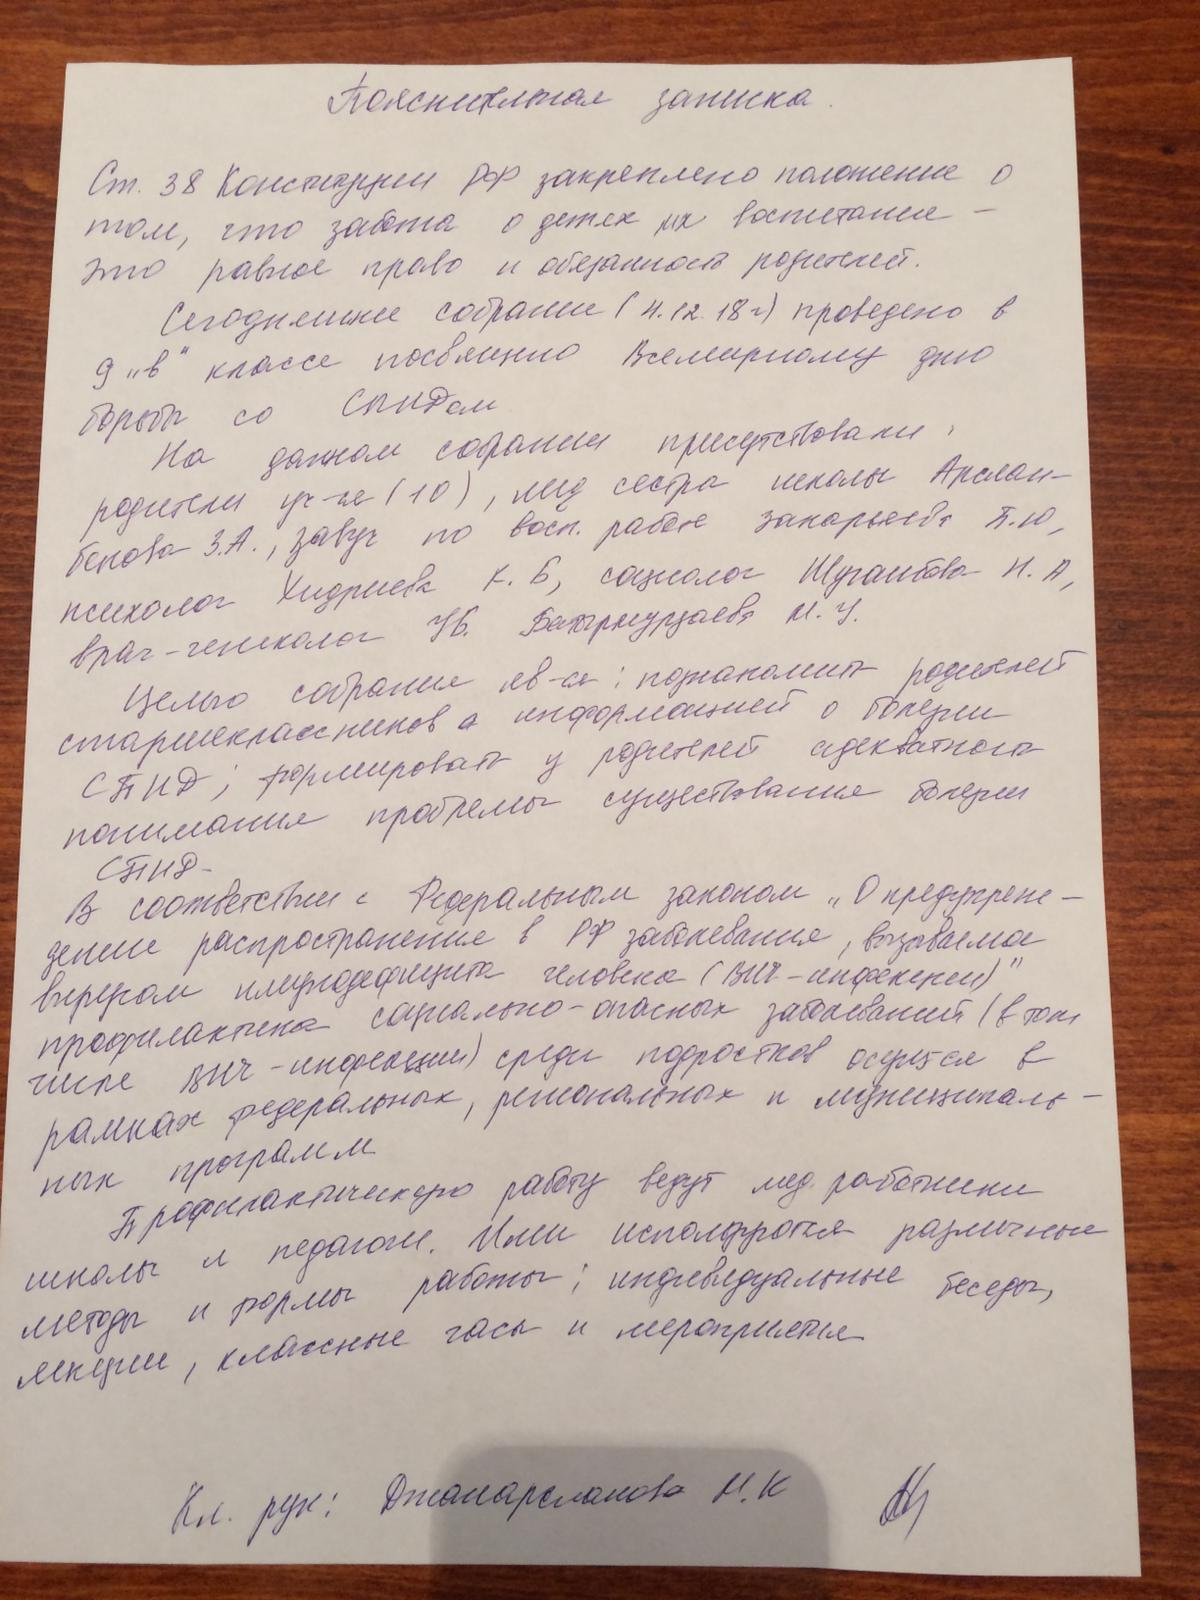 Пояснительная записка.
Ст. 38 Конституции РФ закреплено положение о
том, что забота о детях их воспитание –
это равное право и обязанность родителей.
Сегодняшнее собрание (4.12.18г) проведено в
9 „в" классе посвящено Всемирному дню
борьбы со СПИДом
На данном собрании присутствовали:
родители уч-ся (10), мед сестра школы Арслан-
бекова З.А., завуч по восп. работе Закарьяева П.Ю,
психолог Хидриева К. Б, социолог Шугаибова Н. А,
врач-гениколог УБ. Батырмурзаева М. У.
Целью собрания яв-ся: познакомить родителей
старшеклассников с информацией о болезни
СПИД; формировать у родителей адекватного
понимания проблемы существования болезни
СПИД-
В соответствии с Федеральным законом „О предупреж-
дение распространения в РФ заболевания, вызываемого
вирусом имунодефицита человека (ВИЧ-инфекции)"
профилактика социально-опасных заболеваний (в том
числе ВИЧ-инфекции) среди подростков осущ-ся в
рамках федеральных, региональных и муниципаль-
ных программ
Профилактическую работу ведут мед. работники
школы и педагоги. Ими используются различные
методы и формы работы: индивидуальные беседы,
лекции, классные часы и мероприятия
Кл. рук: Джанарсланова М.К